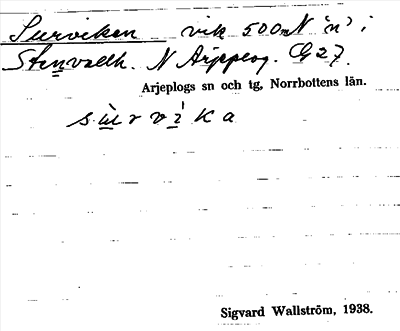 Surviken vik 500m N "n" i
Stenvattn. N Arjeplog. G27.
Arjeplogs sn och tg, Norrbottens län.
sùrvika
Sigvard Wallström, 1938.